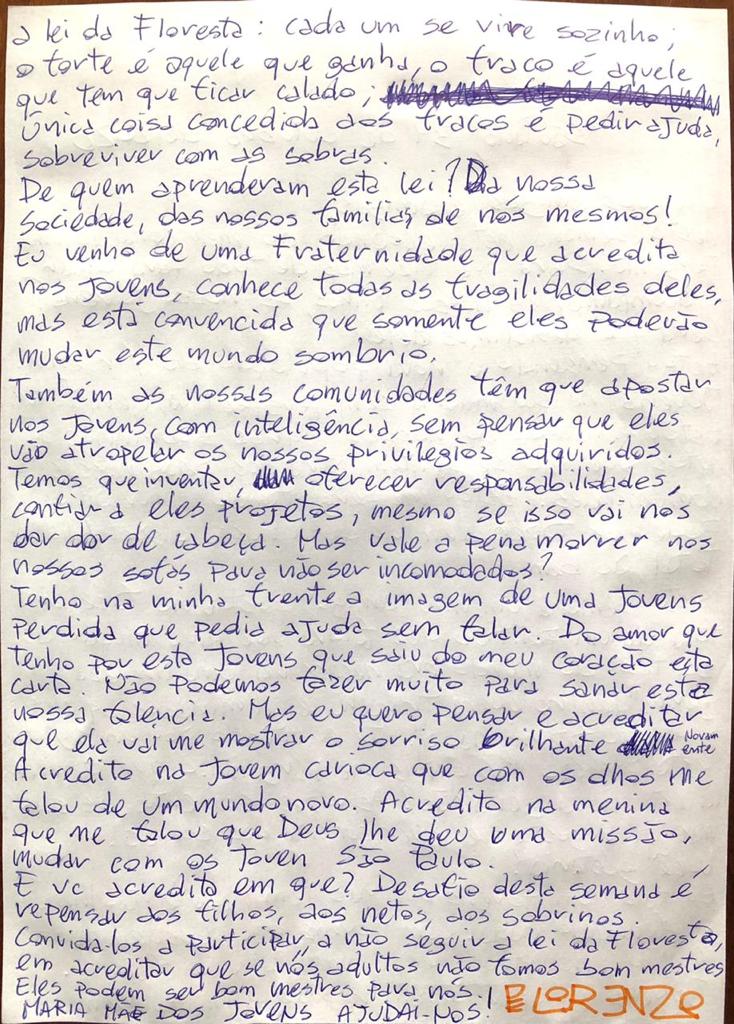 a lei da Floresta: cada um se vire sozinho;
o forte é aquele que ganha, o fraco é aquele
que tem que ficar calado;
única coisa concedida aos fracos é pedir ajuda,
sobreviver com as sobras.
De quem aprenderam esta lei? Da nossa
sociedade, das nossos familias de nós mesmos!
Eu venho de uma Fraternidade que acredita
nos Jovens, conhece todas as fragilidades deles,
mas está convencida que somente eles poderão
mudar este mundo sombrio.
Também as nossas comunidades têm que apostar
nos Jovens, com inteligência, sem pensar que eles
vão atropelar os nossos privilegios adquiridos.
Temos que inventar, oferecer responsabilidades,
confiar a eles projetos, mesmo se isso vai nos
dar dor de cabeça. Mas vale a pena morrer nos
nossos sofás para não ser incomodados?
Tenho na minha frente a imagem de uma Jovens
perdida que pedia ajuda sem falar. Do amor que
tenho por esta Jovens que saiu do meu coração esta
carta. Não podemos fazer muito para sanar esta
nossa falência. Mas eu quero pensar e acreditar
que ela vai me mostrar o sorriso brilhante Novamente
Acredito na Jovem carioca que com os olhos me
falou de um mundo novo. Acredito na menina
que me falou que Deus lhe deu uma missão,
mudar com os Joven São Paulo.
E vc acredita em que? Desafio desta semana é
repensar aos filhos, aos netos, aos sobrinos.
Convida-los a participar, a não seguir a lei da Floresta,
em acreditar que se nós adultos não fomos bom mestres
Eles podem ser bom mestres para nós.!
MARIA MAE DOS JOVENS AJUDAI-NOS! LORENZO